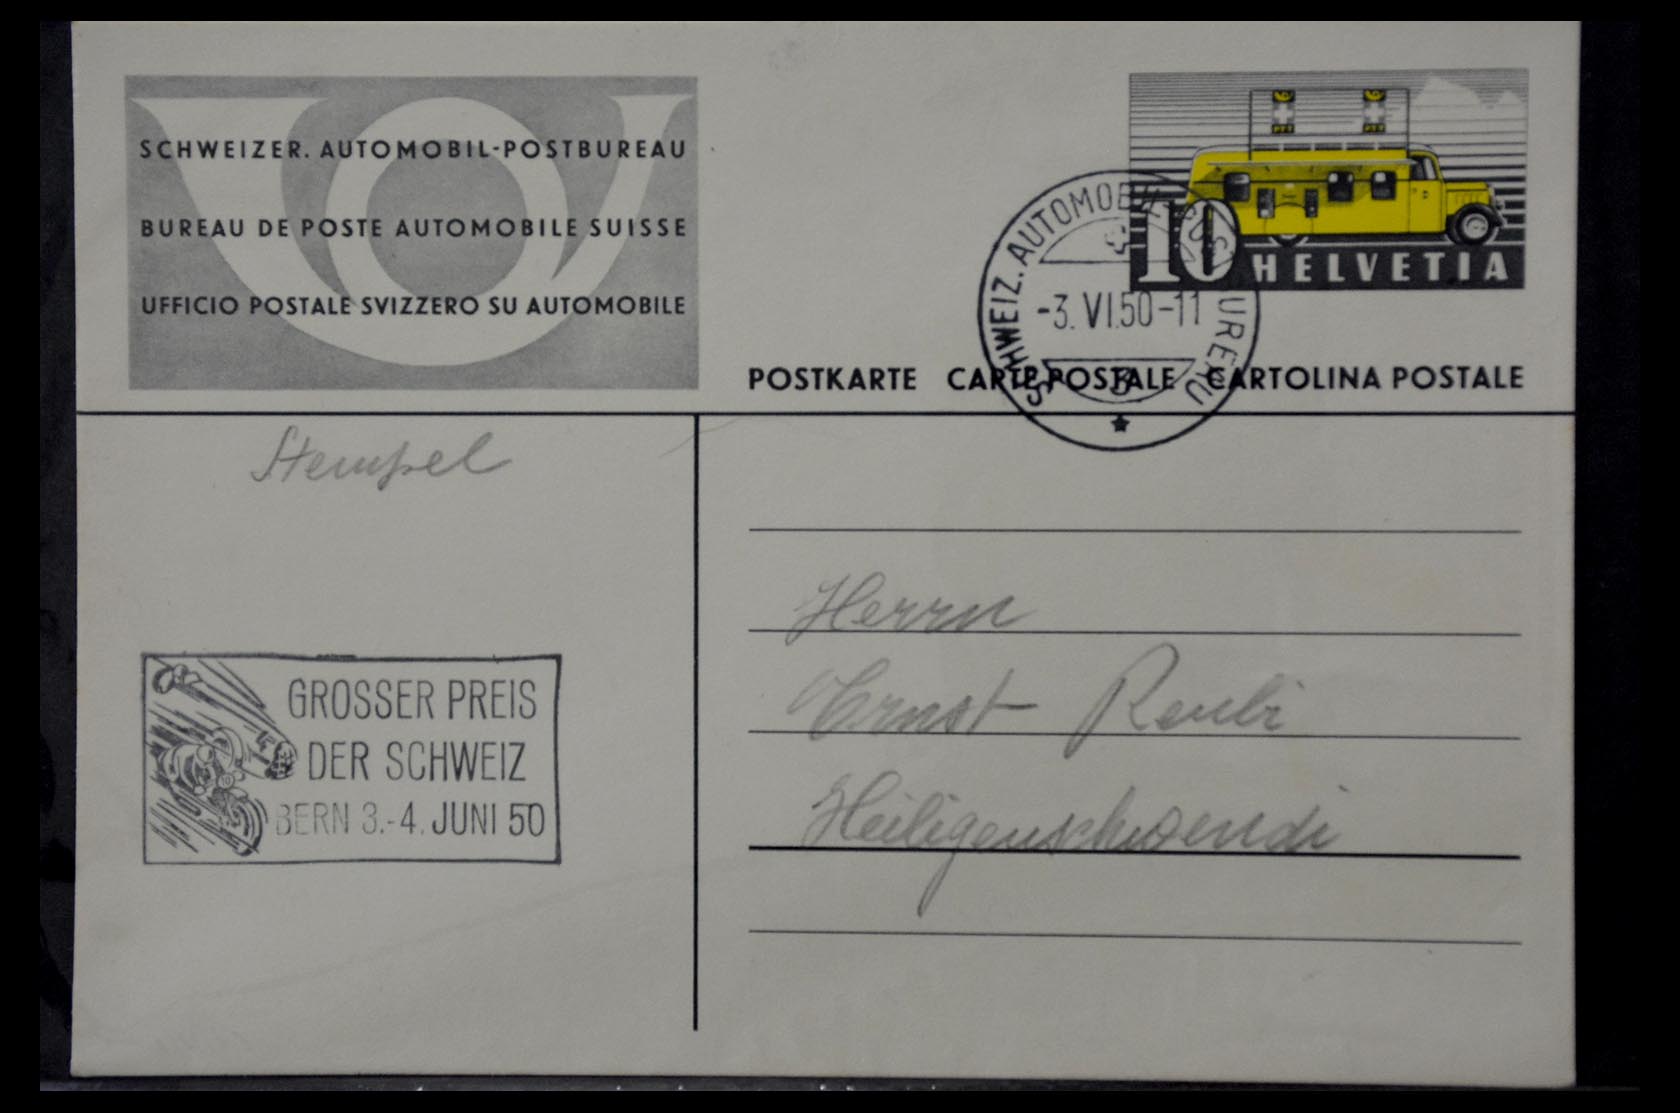 SCHWEIZER. AUTOMOBIL-POSTBUREAU
BUREAU DE POSTE AUTOMOBILE SUISSE
UFFICIO POSTALE SVIZZERO SU AUTOMOBILE
10 HELVETIA
SCHWEIZ. AUTOMOBIL-POSTBUREAU
-3. VI.50-11
3
POSTKARTE CARTE POSTALE CARTOLINA POSTALE
Stempel
GROSSER PREIS
DER SCHWEIZ
BERN 3.-4. JUNI 50
Herrn
Ernst Reubi
Heiligenschwendi